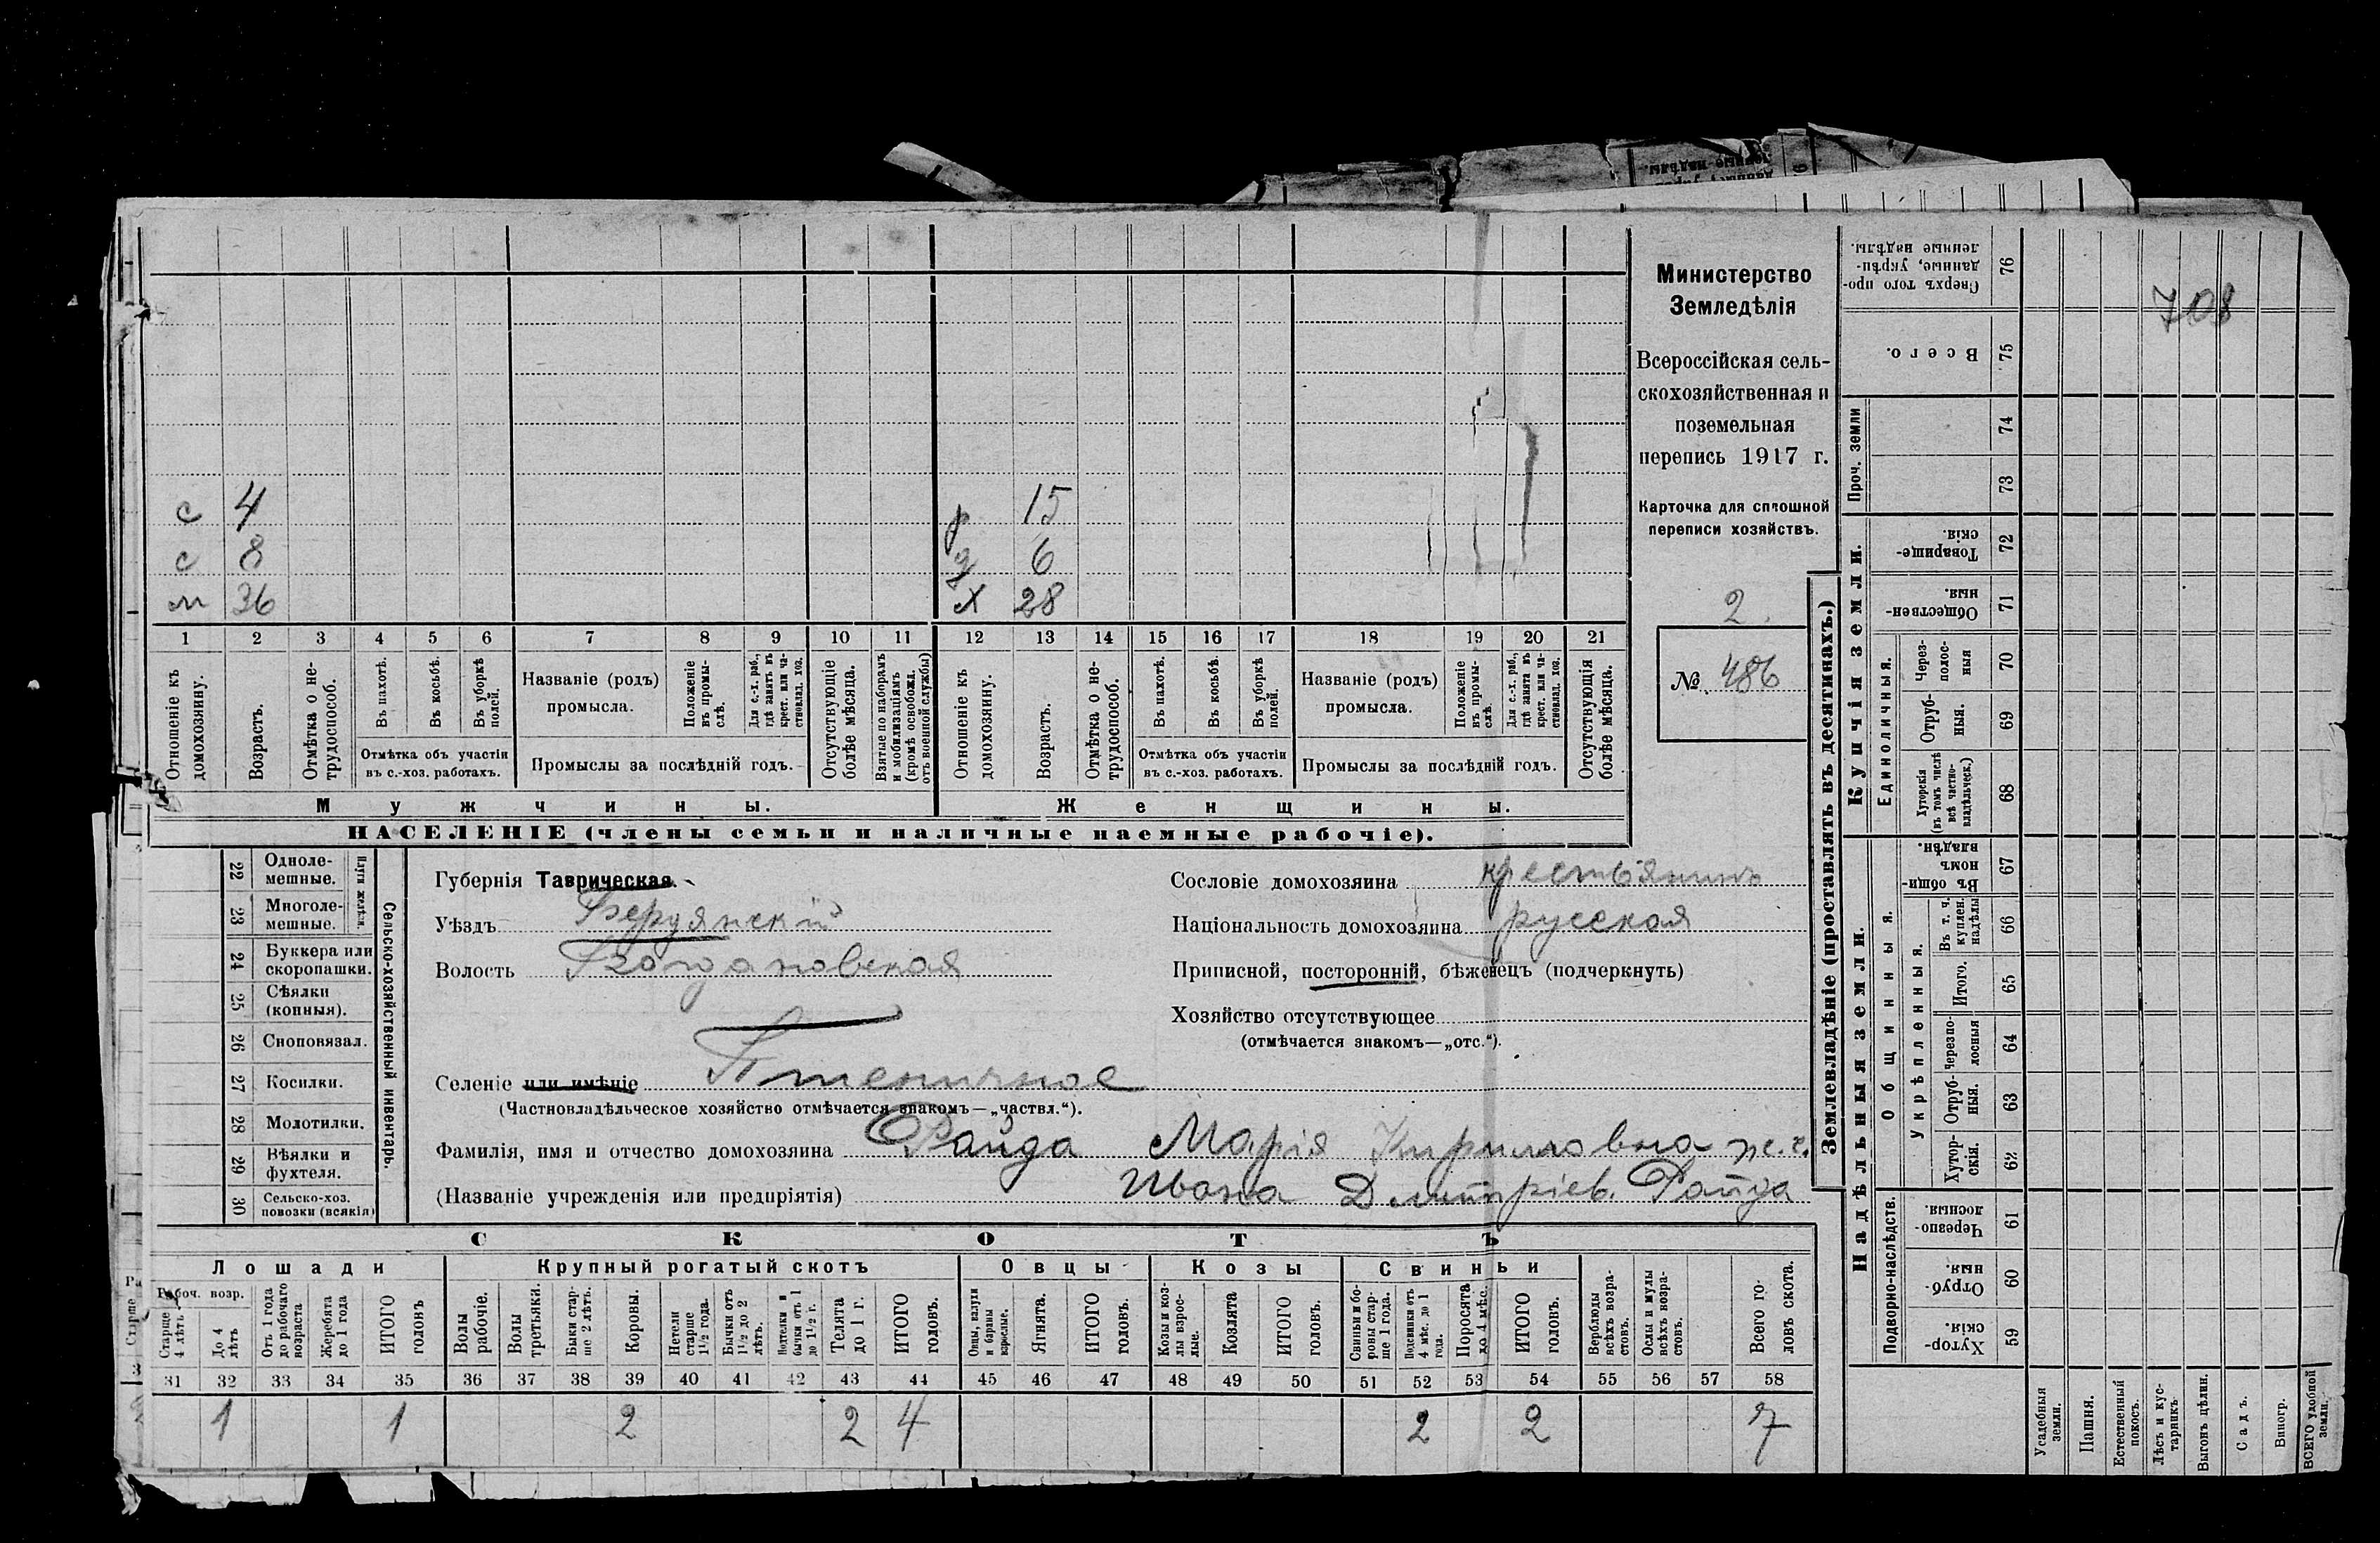 708
Министерство
Земледѣлія
Всероссійская сель-
скохозяйственная и
поземельная
перепись 1917 г.
Карточка для сплошной
переписи хозяйствъ.
2.
№ 486
с 4 15
с 8 д 6
м 36 х 28
1 2 3 4 5 6 7 8 9 10 11 12 13 14 15 16 17 18 19 20 21
Отношеніе къ домохозяину.
Возрастъ.
Отмѣтка о не-трудоспособ.
Въ пахотѣ.
Въ косьбѣ.
Въ уборкѣ полей.
Отмѣтка объ участіи въ с.-хоз. работахъ.
Названіе (родъ) промысла.
Положеніе въ промы-слѣ.
Для с.-х. раб., гдѣ занятъ въ крест. или ча-стновлад. хоз.
Промыслы за послѣдній годъ.
Отсутствующіе болѣе мѣсяца.
Взятые по наборамъ и мобилизаціямъ (кромѣ освобожд. отъ военной службы)
Отношеніе къ домохозяину.
Возрастъ.
Отмѣтка о не-трудоспособ.
Въ пахотѣ.
Въ косьбѣ.
Въ уборкѣ полей.
Отмѣтка объ участіи въ с.-хоз. работахъ.
Названіе (родъ) промысла.
Положеніе въ промы-слѣ.
Для с.-х. раб., гдѣ занята въ крест. или ча-стновлад. хоз.
Промыслы за послѣдній годъ.
Отсутствующія болѣе мѣсяца.
Мужчины. Женщины.
НАСЕЛЕНІЕ (члены семьи и наличные наемные рабочіе).
Сельско-хозяйственный инвентарь.
Плуги желѣз.
22 Одноле-мешные.
23 Многоле-мешные.
24 Буккера или скоропашки.
25 Сѣялки (конныя).
26 Сноповязал.
27 Косилки.
28 Молотилки.
29 Вѣялки и фухтеля.
30 Сельско-хоз. повозки (всякія)
Губернія Таврическая.
Уѣздъ Бердянскій
Волость Богдановская
Селеніе или имѣніе Пшеничное
(Частновладѣльческое хозяйство отмѣчается знакомъ—„частвл.“).
Фамилія, имя и отчество домохозяина Файда Марія Кирилловна ж. с.
(Названіе учрежденія или предпріятія) Ивана Дмитріев. Файда
Сословіе домохозяина крестьянинъ
Національность домохозяина русская
Приписной, посторонній, бѣженецъ (подчеркнуть)
Хозяйство отсутствующее
(отмѣчается знакомъ—„отс.“).
СКОТЪ
Лошади Крупный рогатый скотъ Овцы Козы Свиньи
Рабоч. возр.
Старше 4 лѣтъ
До 4 лѣтъ
Отъ 1 года до рабочаго возраста
Жеребята до 1 года
ИТОГО головъ
Волы рабочіе.
Волы третьяки.
Быки стар-ше 2 лѣтъ.
Коровы.
Нетели старше 1½ года.
Бычки отъ 1½ до 2 лѣтъ.
Нетелки и бычки отъ 1 до 1½ г.
Телята до 1 г.
ИТОГО головъ.
Овцы, валухи и бараны взрослые.
Ягнята.
ИТОГО головъ.
Козы и коз-лы взрос-лые.
Козлята
ИТОГО головъ.
Свиньи и бо-ровы стар-ше 1 года.
Подсвинки отъ 4 мѣс. до 1 года.
Поросята до 4 мѣс.
ИТОГО головъ.
Верблюды всѣхъ возра-стовъ.
Ослы и мулы всѣхъ возра-стовъ.
Всего го-ловъ скота.
31 32 33 34 35 36 37 38 39 40 41 42 43 44 45 46 47 48 49 50 51 52 53 54 55 56 57 58
1 1 2 2 4 2 2 7
Землевладѣніе (проставлять въ десятинахъ.)
Сверхъ того про-данные, укрѣп-ленные надѣлы. 76
Всего. 75
Проч. земли
74
73
Купчія земли.
Товарище-скія. 72
Обществен-ныя. 71
Единоличныя.
Через-полос-ныя 70
Отруб-ныя. 69
Хуторскія (въ томъ числѣ всѣ частно-владѣльческ.) 68
Надѣльныя земли.
Общинныя.
Въ общин-номъ владѣн. 67
Укрѣпленныя.
Въ т. ч. куплен. надѣлы 66
Итого. 65
Черезпо-лосныя 64
Отруб-ныя. 63
Хутор-скія. 62
Подворно-наслѣдств.
Черезпо-лосныя. 61
Отруб-ныя. 60
Хутор-скія. 59
Усадебныя земли.
Пашня.
Естественный покосъ.
Лѣсъ и кус-тарникъ
Выгонъ цѣлин.
Садъ.
Виногр.
ВСЕГО удобной земли.